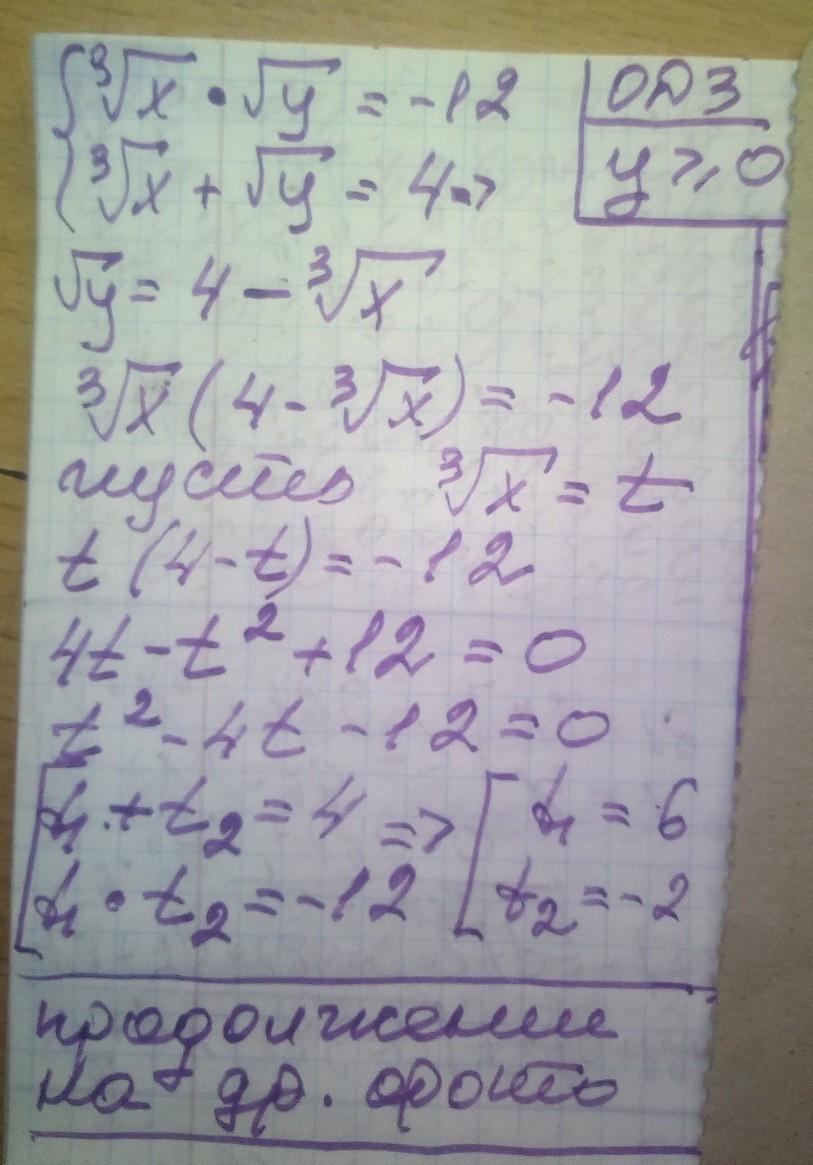 ∛x • √y = -12
ОДЗ
∛x + √y = 4 =>
y ⩾ 0
√y = 4 - ∛x
∛x (4 - ∛x) = -12
пусть ∛x = t
t (4 - t) = -12
4t - t² + 12 = 0
t² - 4t - 12 = 0
t₁ + t₂ = 4 => t₁ = 6
t₁ • t₂ = -12 t₂ = -2
продолжение
на др. фото